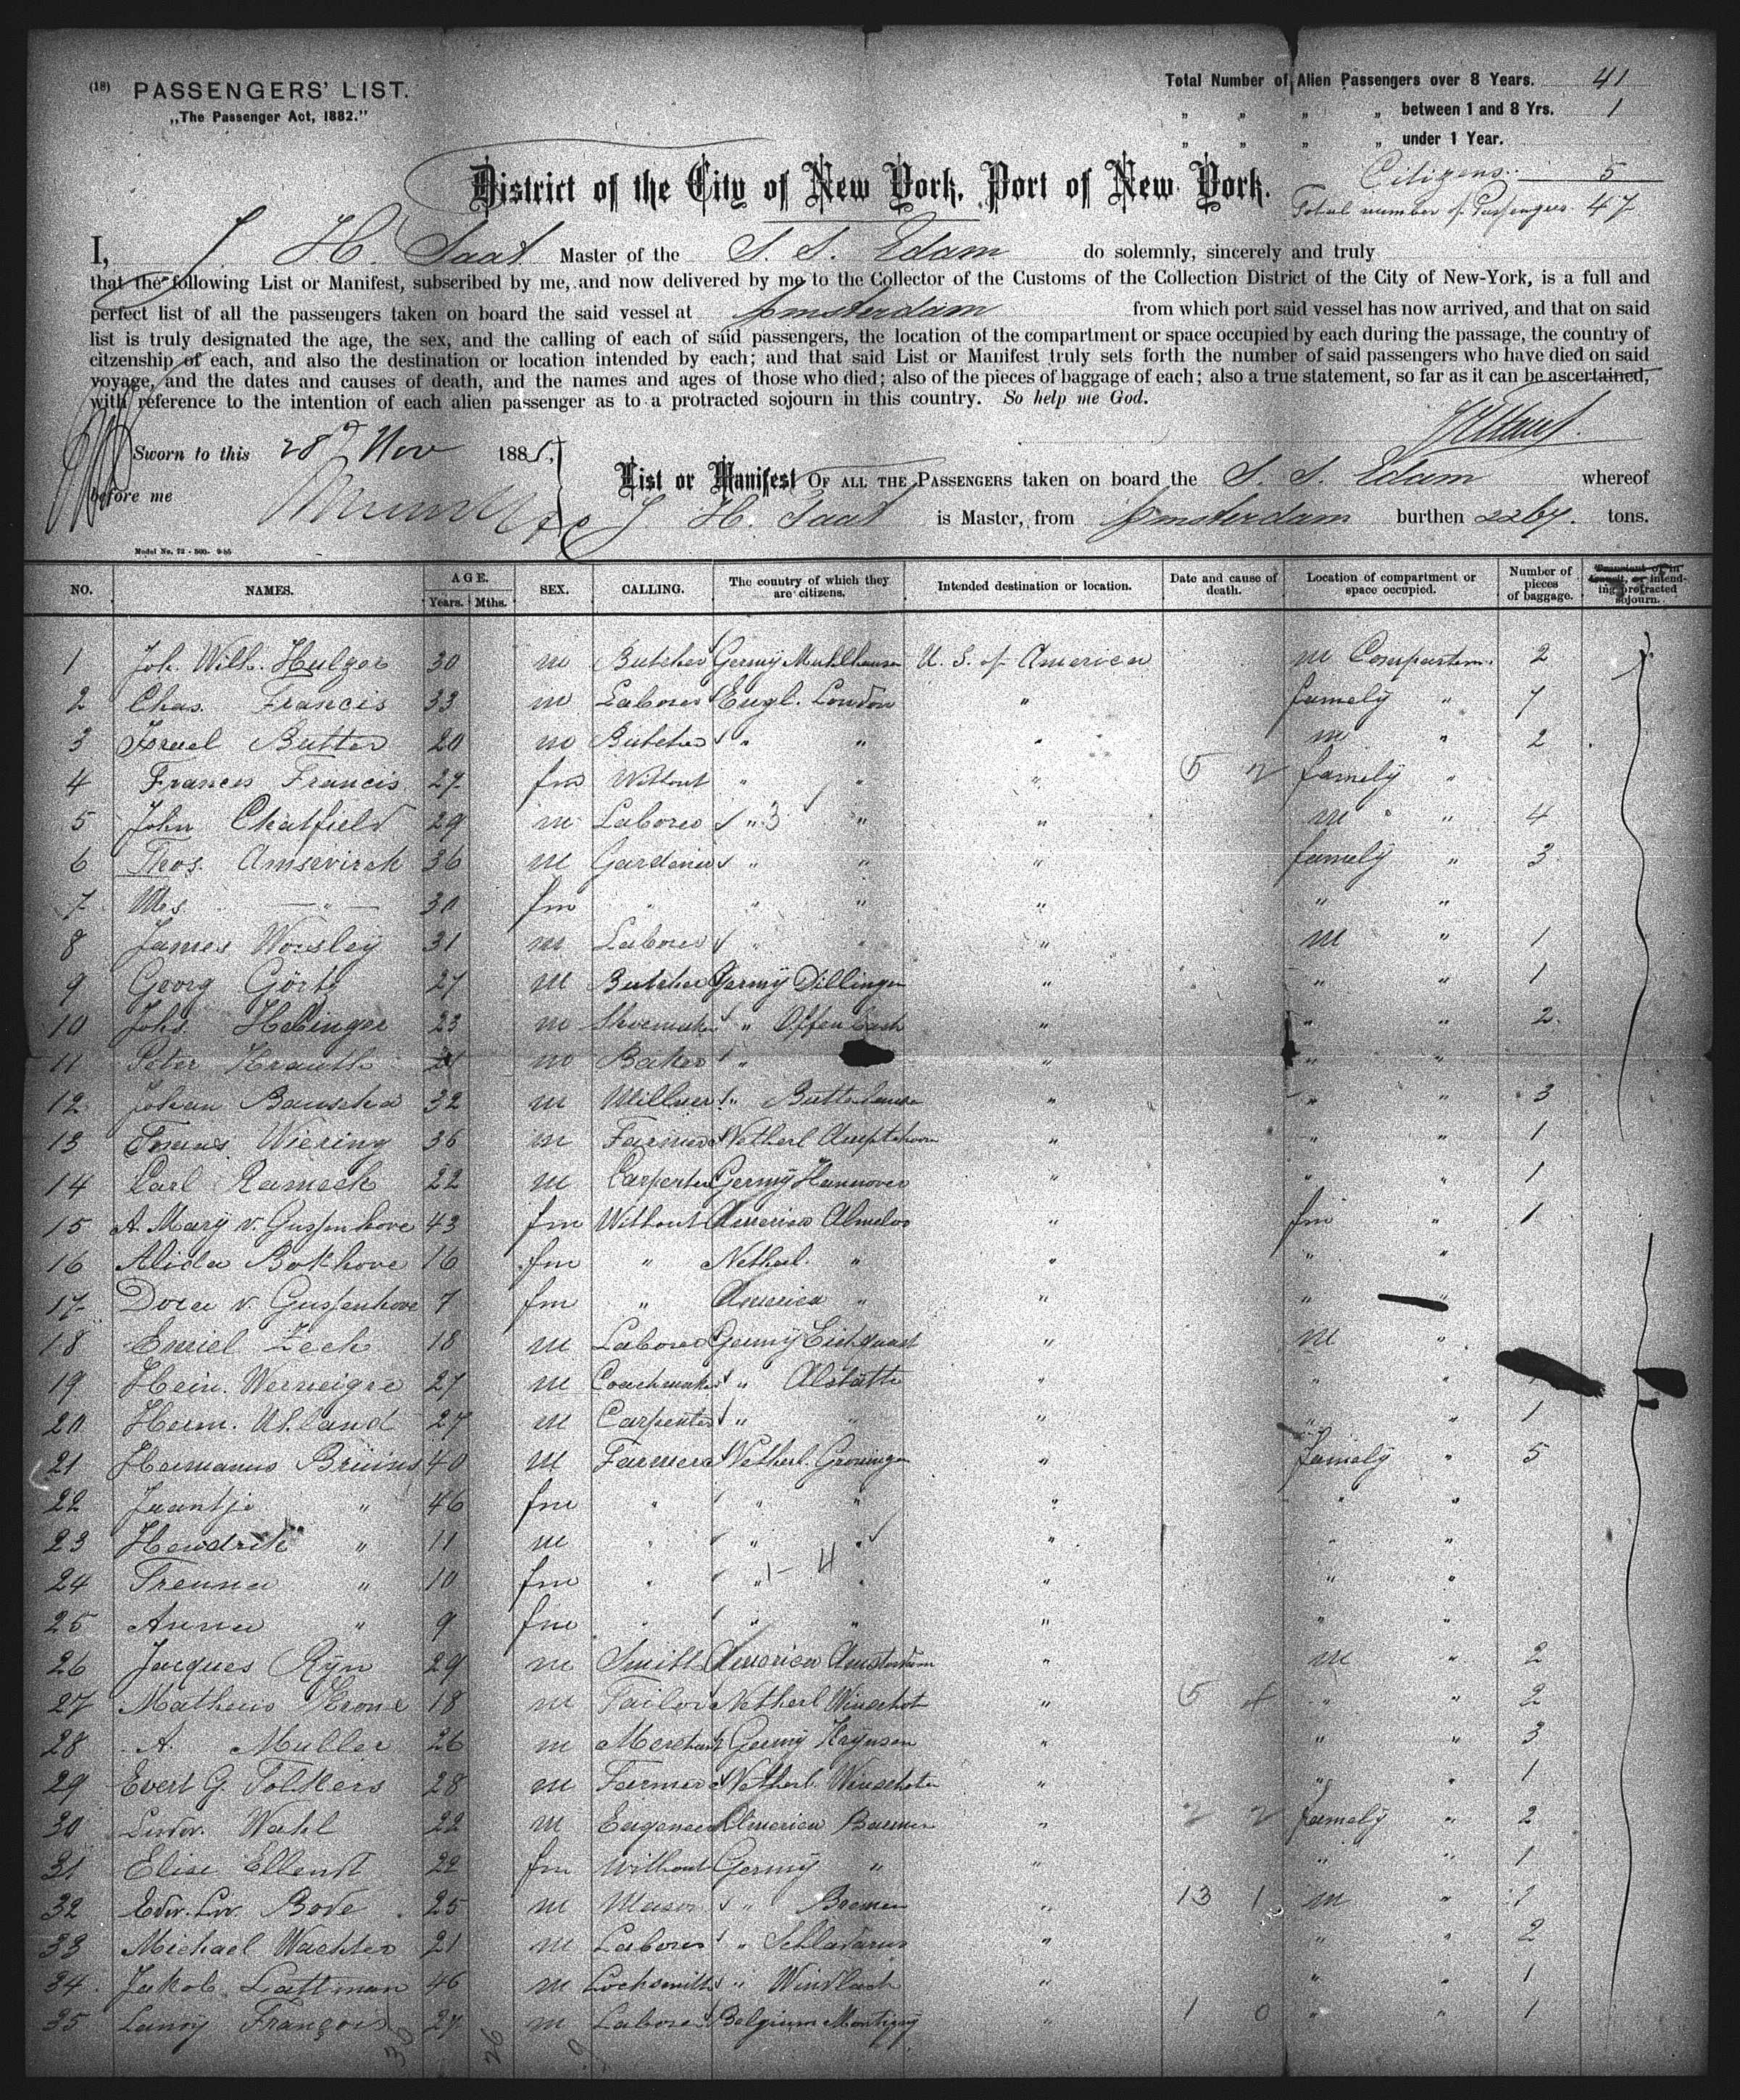 (18) PASSENGERS' LIST.
„The Passenger Act, 1882."
Total Number of Alien Passengers over 8 Years. 41
„ „ „ „ between 1 and 8 Yrs. 1
„ „ „ „ under 1 Year.
Citizens 5
Total number of Passengers 47
District of the City of New York, Port of New York.
I, J. H. Taat Master of the S. S. Edam do solemnly, sincerely and truly
that the following List or Manifest, subscribed by me, and now delivered by me to the Collector of the Customs of the Collection District of the City of New-York, is a full and
perfect list of all the passengers taken on board the said vessel at Amsterdam from which port said vessel has now arrived, and that on said
list is truly designated the age, the sex, and the calling of each of said passengers, the location of the compartment or space occupied by each during the passage, the country of
citzenship of each, and also the destination or location intended by each; and that said List or Manifest truly sets forth the number of said passengers who have died on said
voyage, and the dates and causes of death, and the names and ages of those who died; also of the pieces of baggage of each; also a true statement, so far as it can be ascertained,
with reference to the intention of each alien passenger as to a protracted sojourn in this country. So help me God.
Sworn to this 28 Nov 1885,
before me
List or Manifest OF ALL THE PASSENGERS taken on board the S. S. Edam whereof
J. H. Taat is Master, from Amsterdam burthen 2267. tons.
Model No. 72 - 500- 9-85
NO. NAMES. AGE. Years. Mths. SEX. CALLING. The country of which they are citizens. Intended destination or location. Date and cause of death. Location of compartment or space occupied. Number of pieces of baggage. Transient or in transit, or intending protracted sojourn.
1 Joh. Wilh. Hulger 30 m Butcher Germy Muhlhausen U. S. of America m Compartem. 2
2 Chas. Francis 33 m Laborer Engl. London " famely " 7
3 Israel Butter 20 m Butcher " " " m " 2
4 Frances Francis 27 fm Without " " " 5 famely "
5 John Chatfield 29 m Laborer " 3 " " m " 4
6 Thos. 36 m Gardener " " " famely " 3
7 Mrs. — " — 30 fm " " " " " "
8 James Worsley 31 m Laborer " " " m " 1
9 Georg Görtz 27 m Butcher Germy Dillingen " " " 1
10 Johs. Hebinger 23 m Shoemaker " Offenbach " " " 2
11 Peter Krauth m Baker " " " "
12 Johan 32 m Millner " " " " 3
13 Wiering 36 m Farmer Netherl " " " 1
14 Carl Rameck 22 m Carpenter Germy Hannover " " " 1
15 A. Mary v. Gussenhove 43 fm Without America Almelo " fm " 1
16 Alida Bokhove 16 fm " Netherl. " " " "
17 Dora v. Gussenhove 7 fm " America " " " "
18 Emiel Zech 18 m Laborer Germy " m "
19 Hein. Werneigre 27 m Coachmaker " Alstätte " " "
20 Herm. Uhland 27 m Carpenter " " " " " 1
21 Hermanus Bruins 40 m Farmer Netherl. Groningen " famely " 5
22 Jaantje " 46 fm " " " " " "
23 Hendrik " 11 m " " " " " "
24 " 10 fm " " 1 - 4 " " " "
25 Anna " 9 fm " " " " " "
26 Jacques Ryn 29 m Smith America Amsterdam " m " 2
27 Matheus Krone 18 m Tailor Netherl Winschot " 5 " " 2
28 A. Muller 26 m Merchant Germy " " " 3
29 Evert G Tolkers 28 m Farmer Netherl. Winschoten " " " 1
30 Ludw. Wahl 22 m Engeneer America Barmen " famely " 2
31 Elise Ellenst 22 fm Without Germy " " " " 1
32 Edw. Lw. Bode 25 m Mason " Bremen " 13 1 m " 1
33 Michael Wachter 21 m Laborer " " " " 2
34 Jakob Lattman 46 m Locksmith " " " " 1
35 Lamy François 27 m Laborer Belgium Montigny " 1 0 " " 1